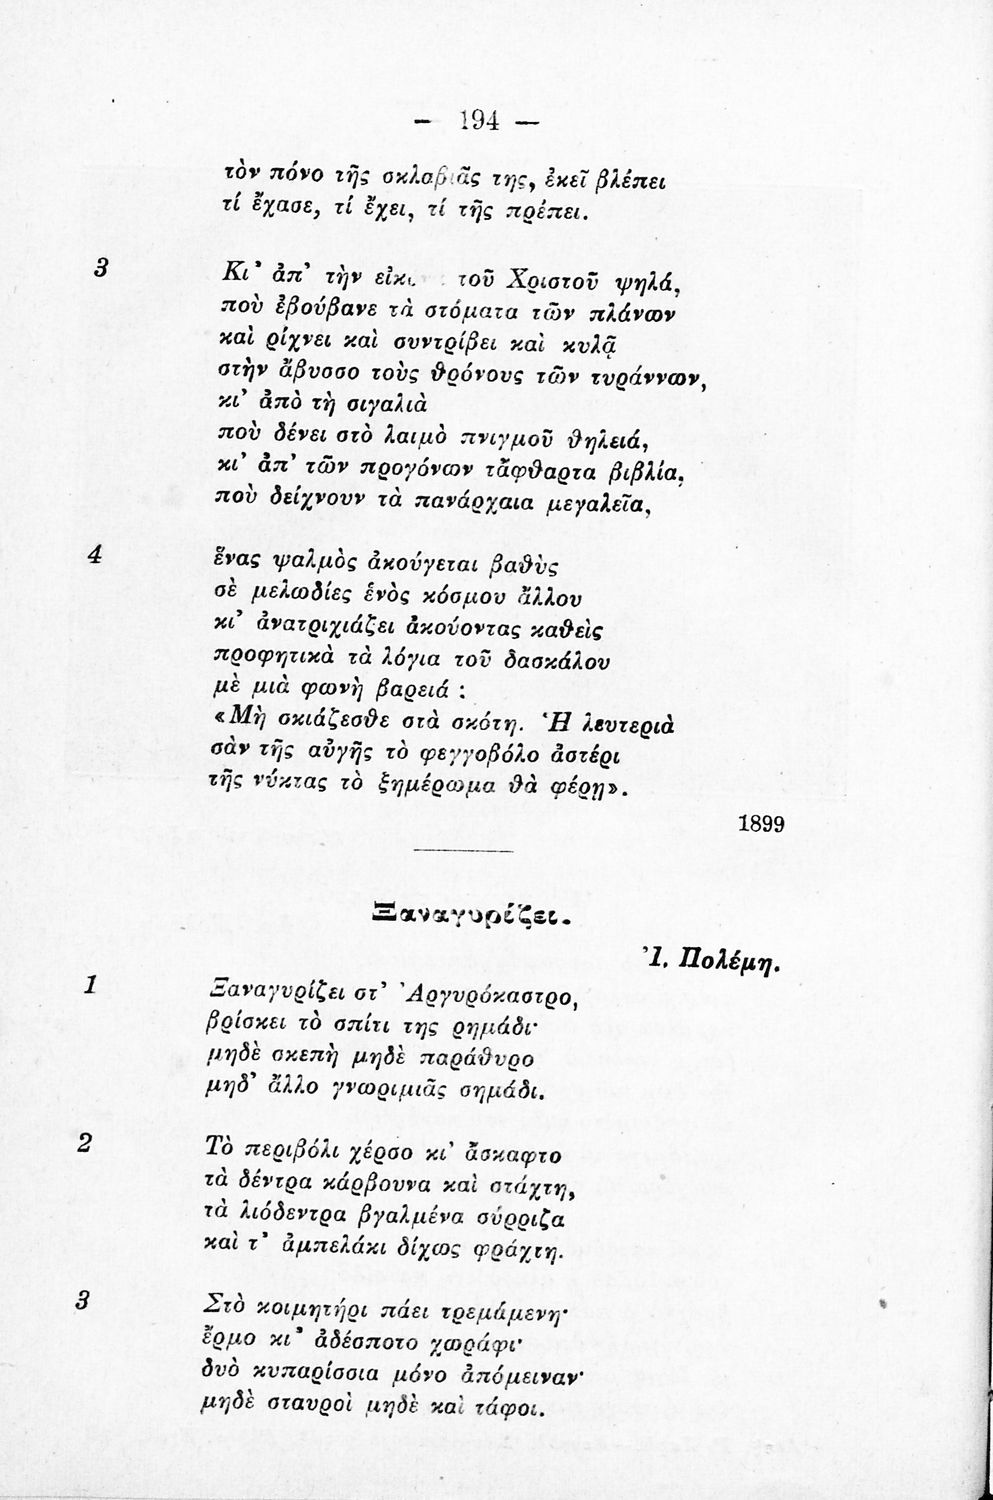 — 194 —
τὸν πόνο τῆς σκλαβιᾶς της, ἐκεῖ βλέπει
τί ἔχασε, τί ἔχει, τί τῆς πρέπει.
3
Κι' ἀπ' τὴν τοῦ Χριστοῦ ψηλά,
ποὺ ἐβούβανε τὰ στόματα τῶν πλάνων
καὶ ρίχνει καὶ συντρίβει καὶ κυλᾷ
στὴν ἄβυσσο τοὺς θρόνους τῶν τυράννων,
κι' ἀπὸ τὴ σιγαλιὰ
ποὺ δένει στὸ λαιμὸ πνιγμοῦ θηλειά,
κι' ἀπ' τῶν προγόνων τἄφθαρτα βιβλία,
ποὺ δείχνουν τὰ πανάρχαια μεγαλεῖα,
4
ἕνας ψαλμὸς ἀκούγεται βαθὺς
σὲ μελωδίες ἑνὸς κόσμου ἄλλου
κι' ἀνατριχιάζει ἀκούοντας καθεὶς
προφητικὰ τὰ λόγια τοῦ δασκάλου
μὲ μιὰ φωνὴ βαρειά :
«Μὴ σκιάζεσθε στὰ σκότη. Ἡ λευτεριὰ
σὰν τῆς αὐγῆς τὸ φεγγοβόλο ἀστέρι
τῆς νύκτας τὸ ξημέρωμα θὰ φέρῃ».
1899
Ξαναγυρίζει.
Ἰ. Πολέμη.
1
Ξαναγυρίζει στ' Ἀργυρόκαστρο,
βρίσκει τὸ σπίτι της ρημάδι·
μηδὲ σκεπὴ μηδὲ παράθυρο
μηδ' ἄλλο γνωριμιᾶς σημάδι.
2
Τὸ περιβόλι χέρσο κι' ἄσκαφτο
τὰ δέντρα κάρβουνα καὶ στάχτη,
τὰ λιόδεντρα βγαλμένα σύρριζα
καὶ τ' ἀμπελάκι δίχως φράχτη.
3
Στὸ κοιμητήρι πάει τρεμάμενη·
ἔρμο κι' ἀδέσποτο χωράφι·
δυὸ κυπαρίσσια μόνο ἀπόμειναν·
μηδὲ σταυροὶ μηδὲ καὶ τάφοι.